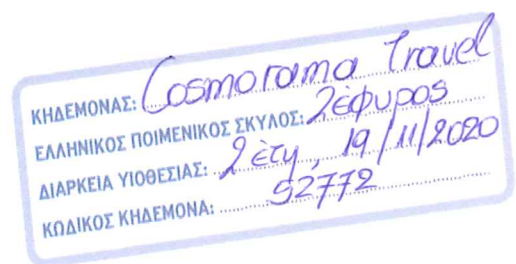 ΚΗΔΕΜΟΝΑΣ: Cosmorama Travel
ΕΛΛΗΝΙΚΟΣ ΠΟΙΜΕΝΙΚΟΣ ΣΚΥΛΟΣ: Ζέφυρος
ΔΙΑΡΚΕΙΑ ΥΙΟΘΕΣΙΑΣ: 2 έτη, 19/11/2020
ΚΩΔΙΚΟΣ ΚΗΔΕΜΟΝΑ: 52772